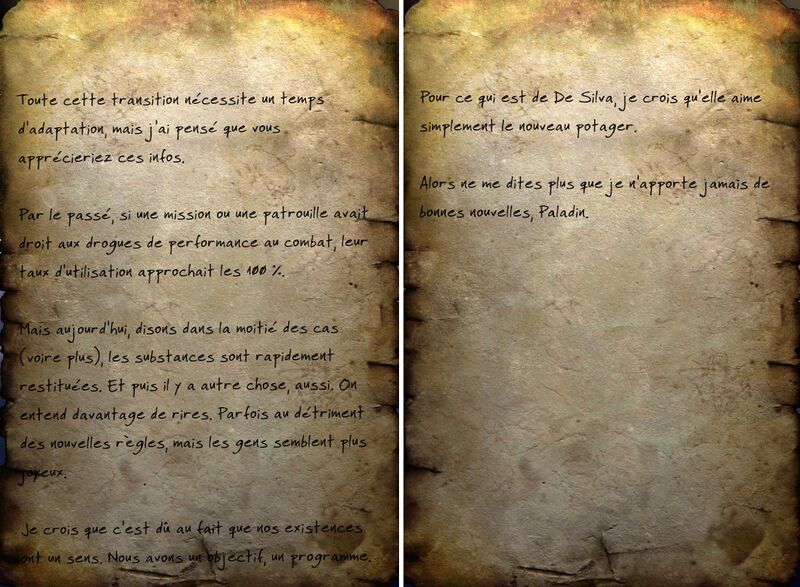 Toute cette transition nécessite un temps
d'adaptation, mais j'ai pensé que vous
apprécieriez ces infos.
Par le passé, si une mission ou une patrouille avait
droit aux drogues de performance au combat, leur
taux d'utilisation approchait les 100 %.
Mais aujourd'hui, disons dans la moitié des cas
(voire plus), les substances sont rapidement
restituées. Et puis il y a autre chose, aussi. On
entend davantage de rires. Parfois au détriment
des nouvelles règles, mais les gens semblent plus
joyeux.
Je crois que c'est dû au fait que nos existences
ont un sens. Nous avons un objectif, un programme.
Pour ce qui est de De Silva, je crois qu'elle aime
simplement le nouveau potager.
Alors ne me dites plus que je n'apporte jamais de
bonnes nouvelles, Paladin.